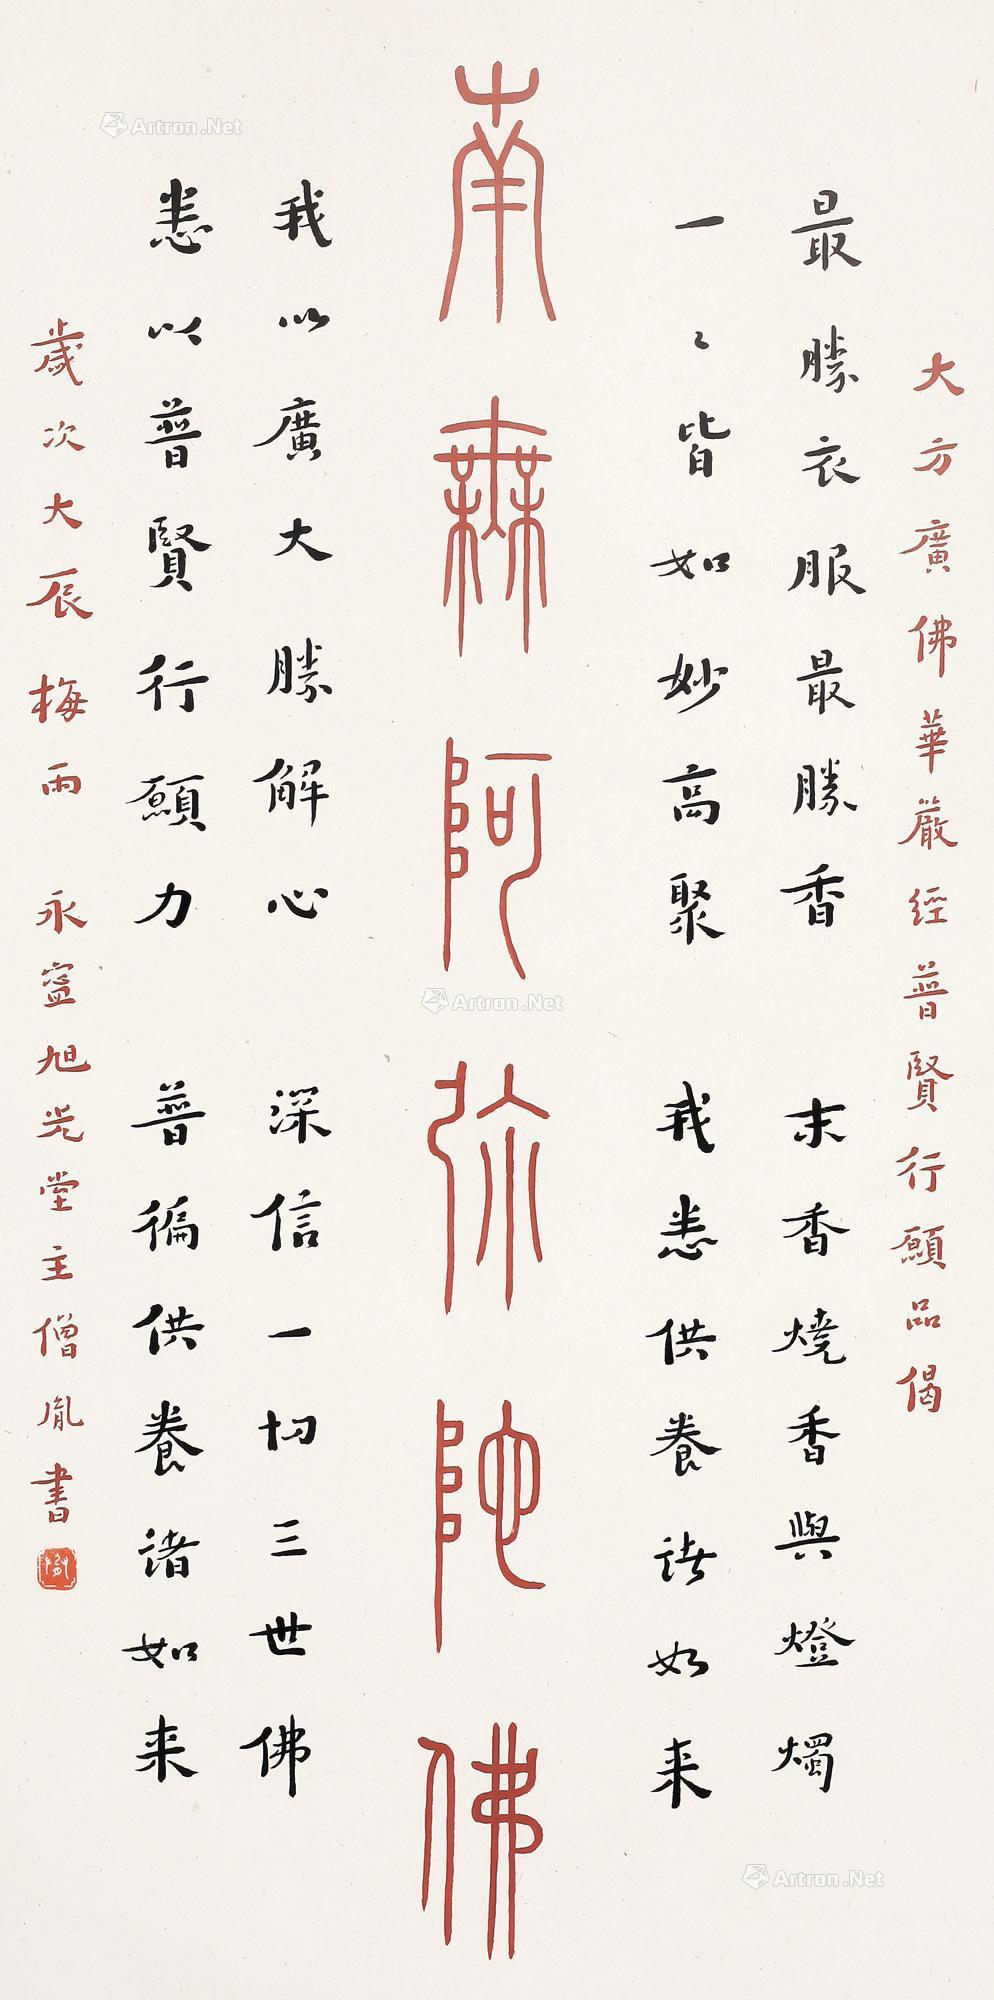 大方廣佛華嚴經普賢行願品偈
最勝衣服最勝香 末香燒香與燈燭
一々皆如妙高聚 我悉供養諸如来
南無阿彌陀佛
我以廣大勝解心 深信一切三世佛
悉以普賢行願力 普徧供養諸如来
歲次大辰梅雨 永寧旭光堂主僧胤書
Artron.Net
Artron.Net
Artron.Net